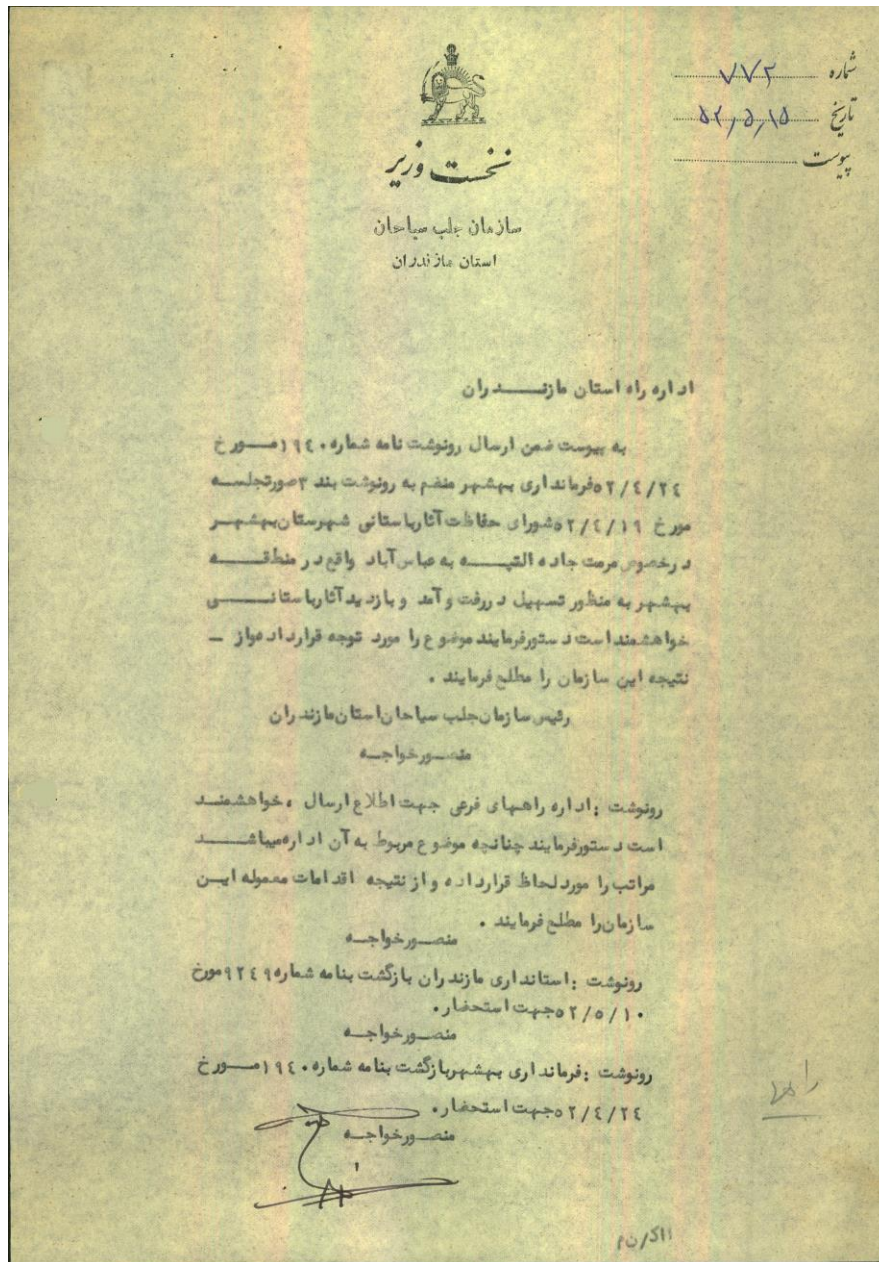 شماره ۷۷۲
تاریخ ۵۲,۵,۱۵
پیوست
نخست وزیر
سازمان جلب سیاحان
استان مازندران
اداره راه استان مازنــــدران
به پیوست ضمن ارسال رونوشت نامه شماره ۱۹۴۰ مــورخ
۵۲/۴/۲۴ فرمانداری بهشهر منضم به رونوشت بند ۳ صورتجلســه
مورخ ۵۲/۴/۱۹ شورای حفاظت آثارباستانی شهرستان بهشهــر
درخصوص مرمت جاده التپــه به عباس آباد واقع در منطقــه
بهشهر به منظور تسهیل در رفت و آمد و بازدید آثارباستانــی
خواهشمند است دستورفرمایند موضوع را مورد توجه قرارداده واز ـ
نتیجه این سازمان را مطلع فرمایند .
رئیس سازمان جلب سیاحان استان مازندران
منصــورخواجــه
رونوشت : اداره راههای فرعی جهت اطلاع ارسال ، خواهشمنــد
است دستورفرمایند چنانچه موضوع مربوط به آن اداره میباشــد
مراتب را مورد لحاظ قرارداده و از نتیجه اقدامات معموله ایــن
سازمان را مطلع فرمایند .
منصــورخواجــه
رونوشت : استانداری مازندران بازگشت بنامه شماره ۹۲۴۹ مورخ
۵۲/۵/۱۰ جهت استحضار .
منصــورخواجــه
رونوشت : فرمانداری بهشهر بازگشت بنامه شماره ۱۹۴۰ مــورخ
۵۲/۴/۲۴ جهت استحضار .
منصــورخواجــه
راهها